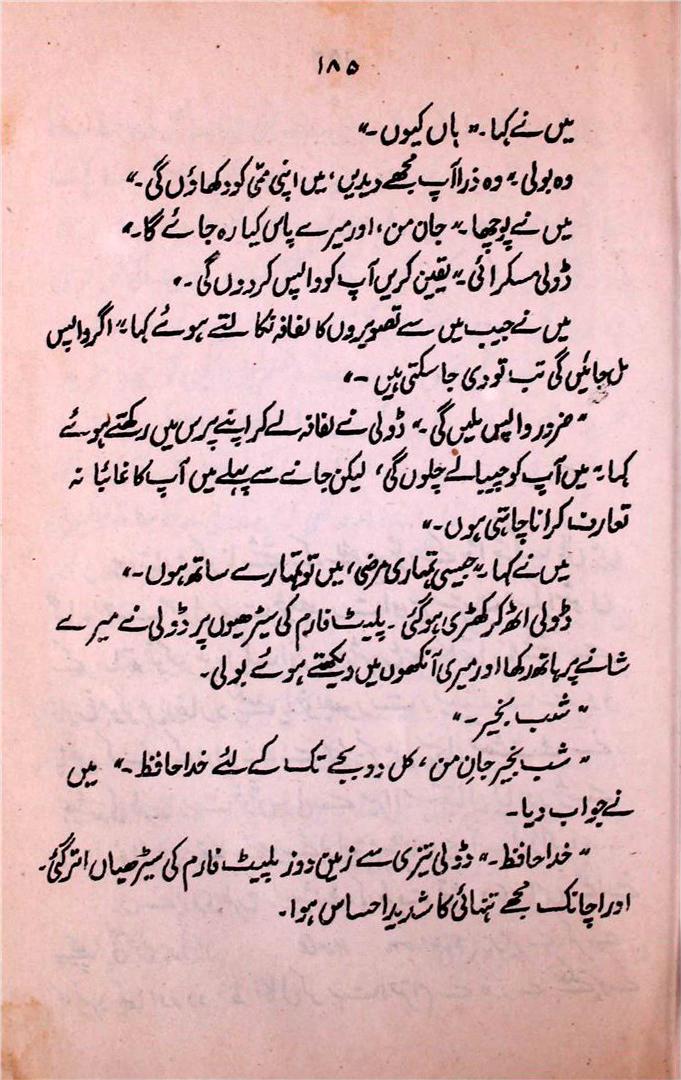 ۱۸۵
میں نے کہا۔ "ہاں کیوں۔"
وہ بولی۔ "وہ ذرا آپ مجھے دیدیں، میں اپنی ممّی کو دکھاؤں گی۔"
میں نے پوچھا۔ "جان من، اور میرے پاس کیا رہ جائے گا۔"
ڈولی مسکرائی۔ "یقین کریں آپ کو واپس کر دوں گی۔"
میں نے جیب میں سے تصویروں کا لفافہ نکالتے ہوئے کہا۔ "اگر واپس
مل جائیں گی تب تو دی جا سکتی ہیں۔"
"ضرور واپس ملیں گی۔" ڈولی نے لفافہ لے کر اپنے پرس میں رکھتے ہوئے
کہا۔ "میں آپ کو جیسا لے چلوں گی، لیکن جانے سے پہلے میں آپ کا غائبانہ
تعارف کرانا چاہتی ہوں۔"
میں نے کہا۔ "جیسی تمہاری مرضی، میں تو تمہارے ساتھ ہوں۔"
ڈولی اٹھ کر کھڑی ہو گئی۔ پلیٹ فارم کی سیڑھیوں پر ڈولی نے میرے
شانے پر ہاتھ رکھا اور میری آنکھوں میں دیکھتے ہوئے بولی۔
"شب بخیر۔"
"شب بخیر جانِ من، کل دو بجے تک کے لئے خدا حافظ۔" میں
نے جواب دیا۔
"خدا حافظ۔" ڈولی تیزی سے زمین دوز پلیٹ فارم کی سیڑھیاں اتر گئی۔
اور اچانک مجھے تنہائی کا شدید احساس ہوا۔